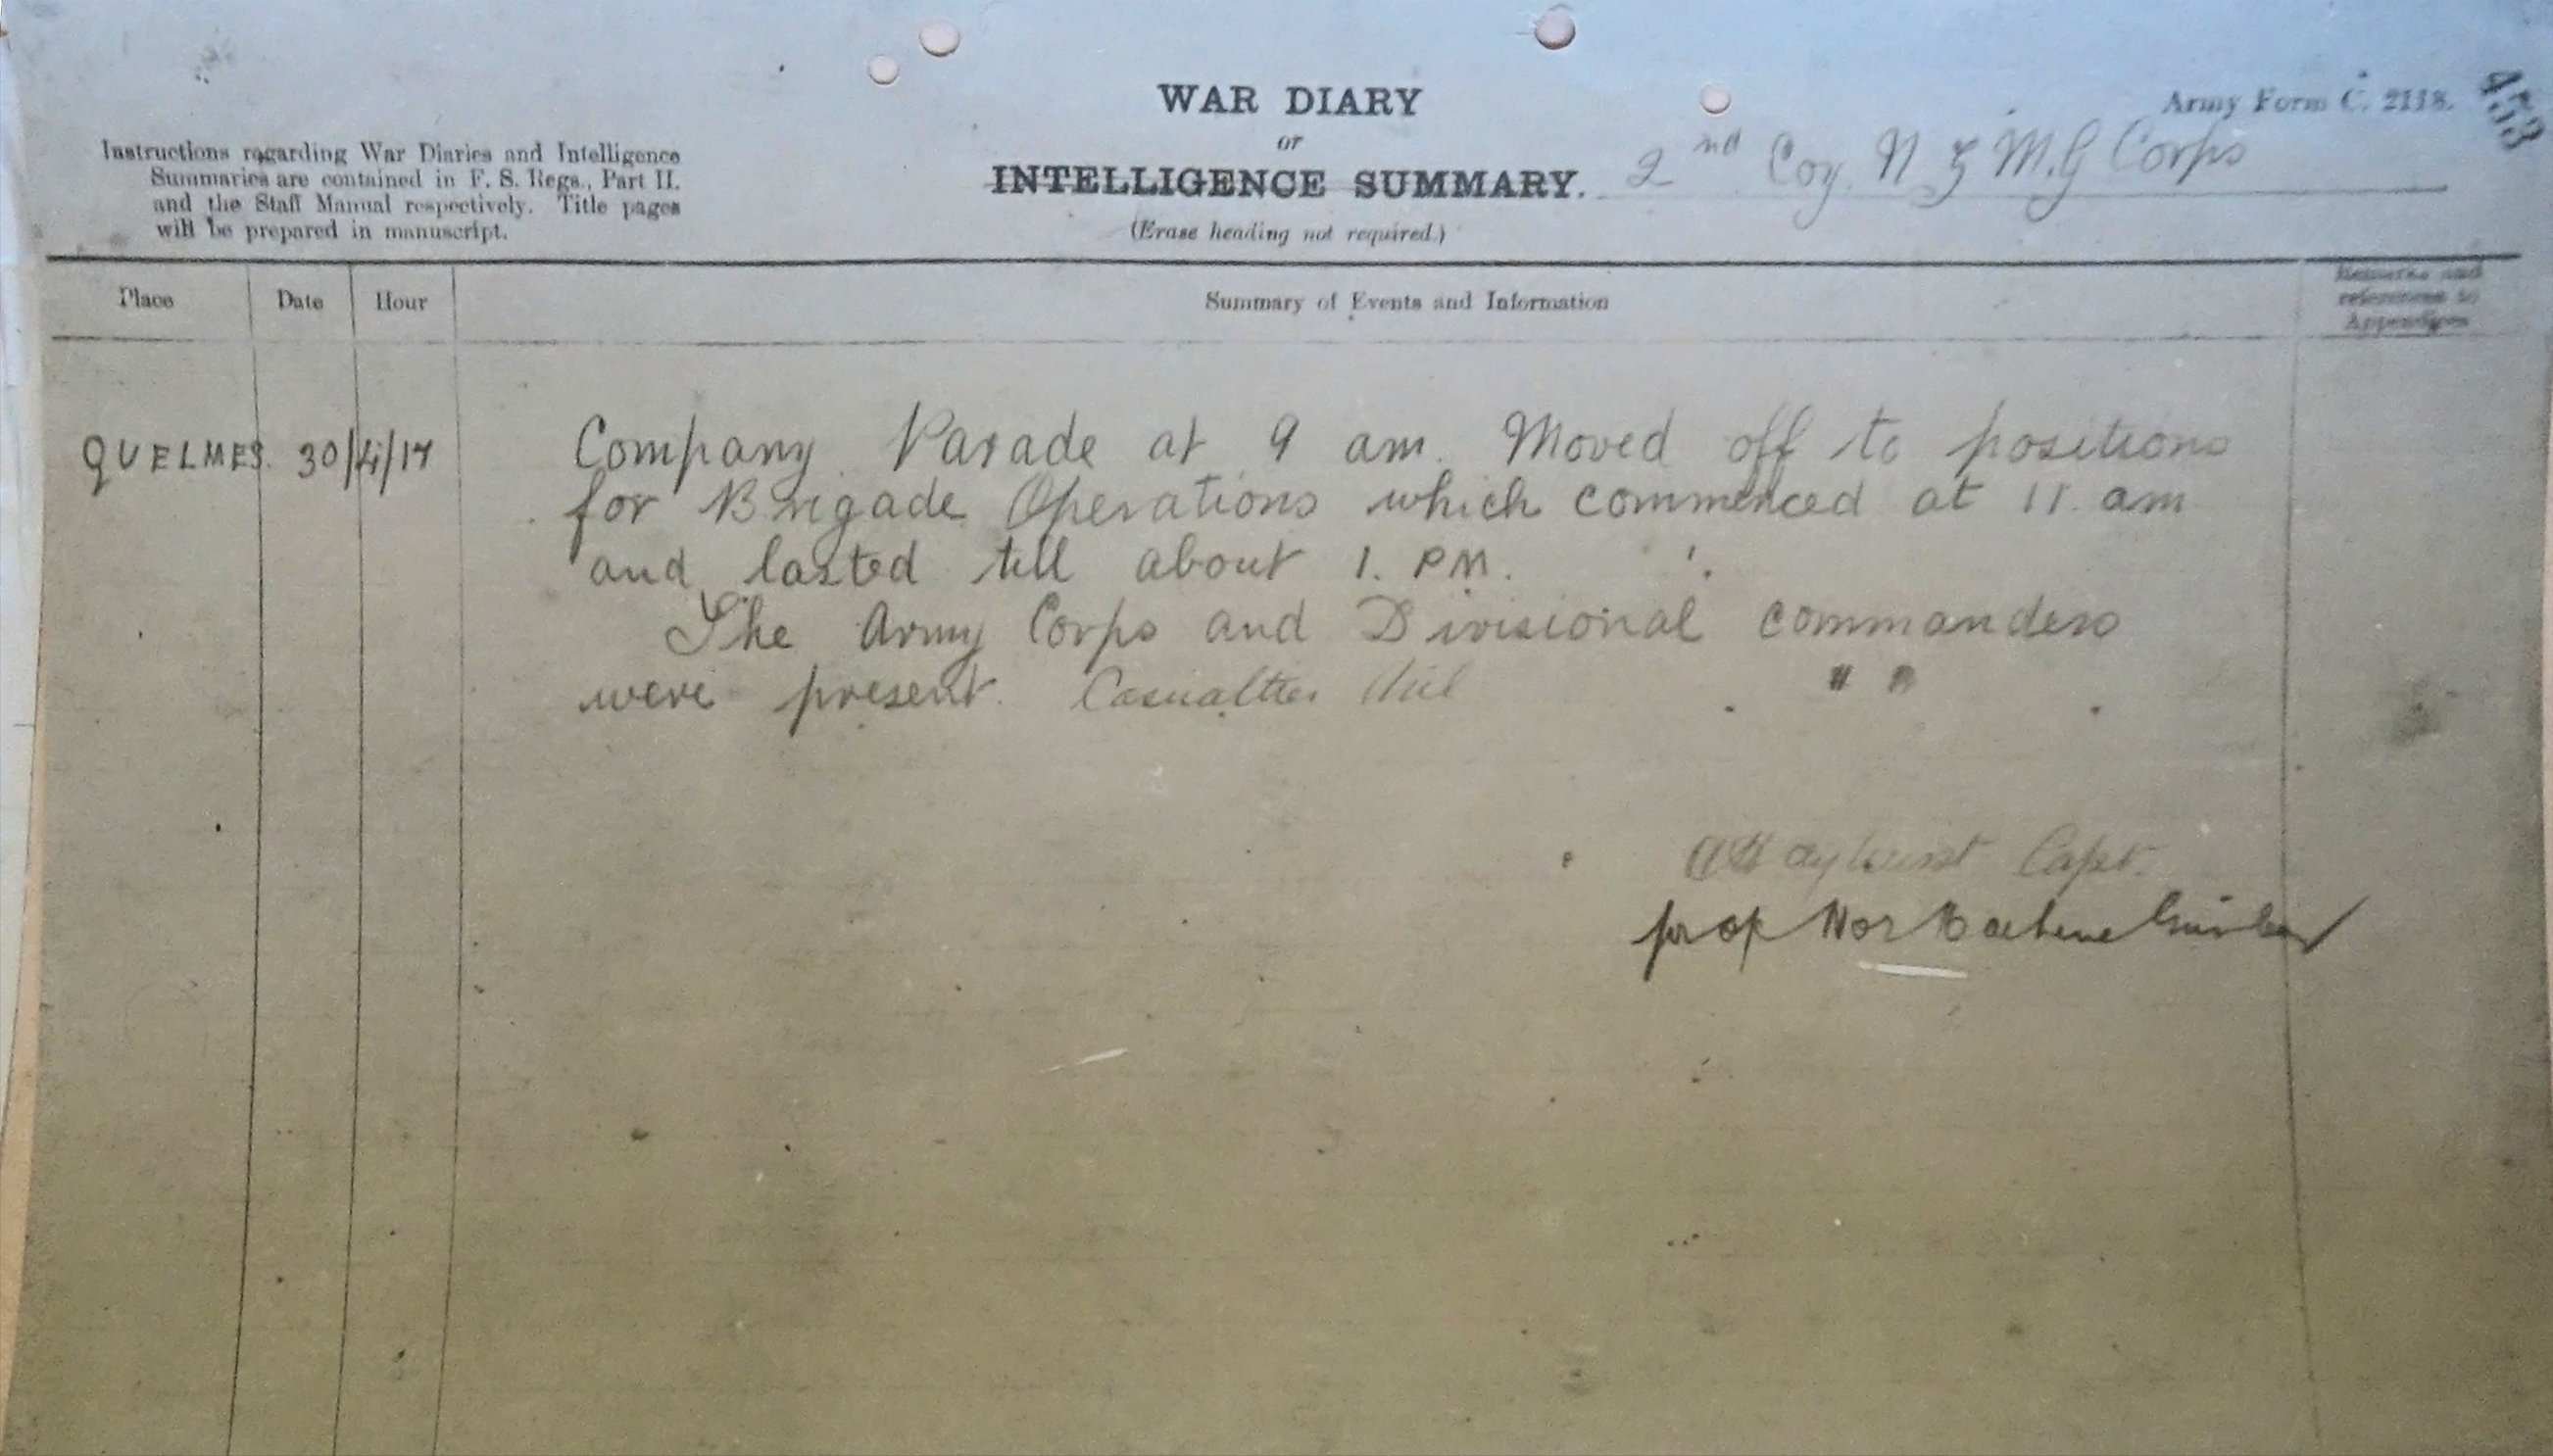 WAR DIARY
or
INTELLIGENCE SUMMARY.
(Erase heading not required.)
Army Form C. 2118.
453
2nd Coy N Z M.G Corps
Instructions regarding War Diaries and Intelligence
Summaries are contained in F. S. Regs., Part II.
and the Staff Manual respectively. Title pages
will be prepared in manuscript.
Place Date Hour Summary of Events and Information Remarks and
references to
Appendices
QUELMES. 30/4/17 Company Parade at 9 am. Moved off to positions
for Brigade Operations which commenced at 11. am
and lasted till about 1. PM.
The Army Corps and Divisional commanders
were present. Casualties Nil
Capt.